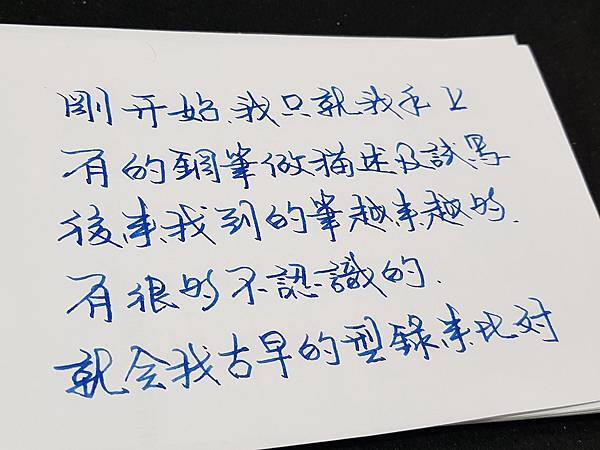 剛开始,我只就我手上
有的鋼筆做描述及試寫
後来找到的筆越来越多.
有很多不認識的.
就会找古早的型錄来比对